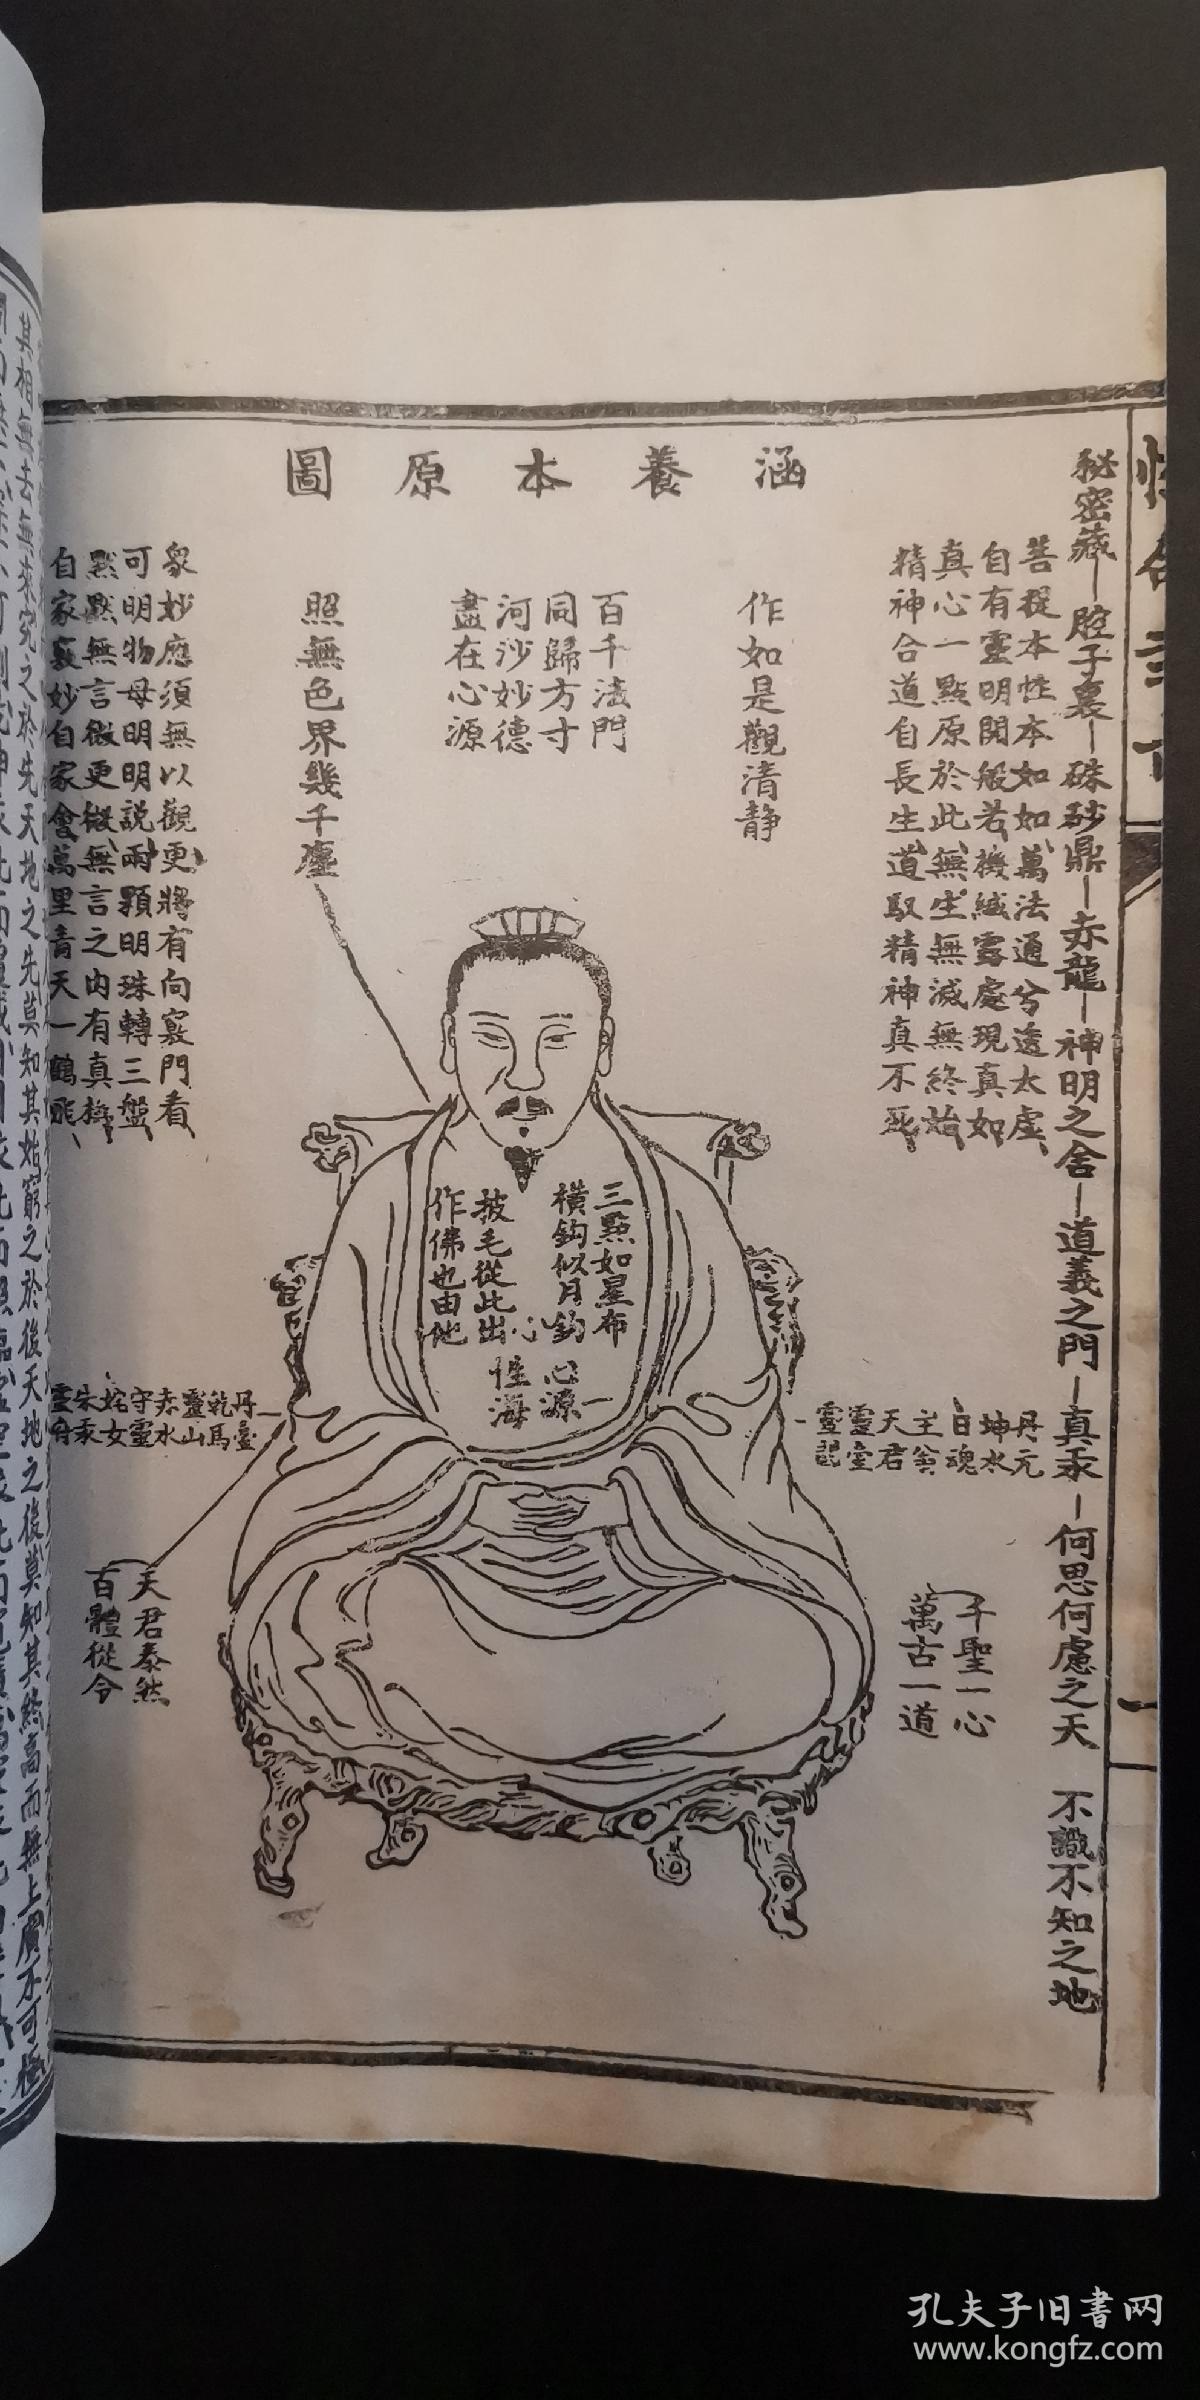 涵養本原圖
秘密藏—腔子裏—硃砂鼎—赤龍—神明之舍—道義之門—真汞—何思何慮之天　不識不知之地
菩提本性本如如萬法通兮透太虛
自有靈明開般若機緘露處現真如
真心一點原於此無生無滅無終始
精神合道自長生道馭精神真不死
作如是觀清静
百千法門
同歸方寸
河沙妙德
盡在心源
照無色界幾千塵
衆妙應須無以觀更將有向竅門看
可明物母明明說兩顆明珠轉三盤
默默無言微更微無言之内有真機
自家竅妙自家會萬里青天一鶴飛
三點如星布
橫鈎似月鈎
披毛從此出
作佛也由他
心源
性海
丹元
坤水
白魂
主翁
天君
靈臺
靈
丹臺
乾馬
靈山
赤水
守靈
姹女
朱汞
靈府
千聖一心
萬古一道
天君泰然
百體從令
一
其相無去無來究之於先天地之先莫知其始窮之於後天地之後莫知其終高而無上廣不可極
孔夫子旧书网
www.kongfz.com